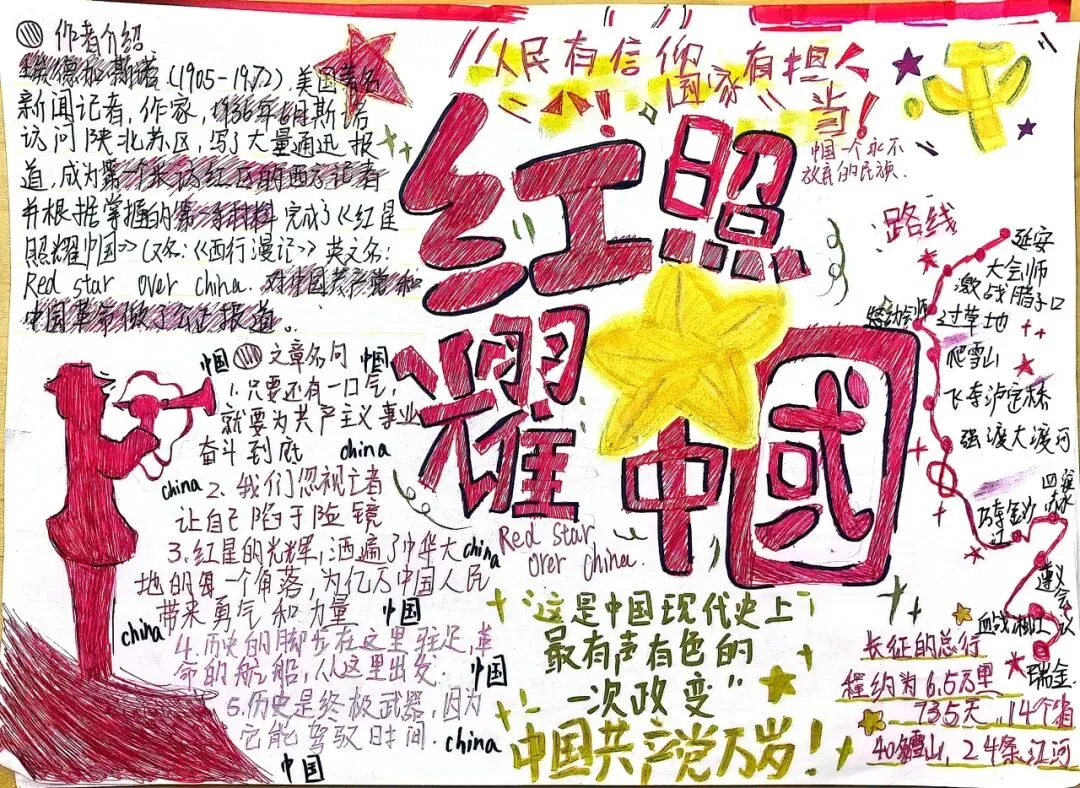 作者介绍
埃德加·斯诺(1905-1972),美国著名
新闻记者,作家,1936年6月斯诺
访问陕北苏区,写了大量通迅报
道,成为第一个采访红区的西方记者
并根据掌握的第一手材料完成了《红星
照耀中国》(又名:《西行漫记》英文名:
Red star over china.对中国共产党和
中国革命做了公正报道。
人民有信仰
国家有担当!
中国一个永不
放弃的民族.
红
照
耀
中
國
Red star
over china.
中国 文章名句 中国
1.只要还有一口气,
就要为共产主义事业
奋斗到底 china
china 2.我们忽视亡者
让自己陷于险镜
3.红星的光辉,洒遍了中华大
china
地的每一个角落,为亿万中国人民
带来勇气和力量 中国
china
4.历史的脚步在这里驻足,革
命的航船,从这里出发. 中国
5.历史是终极武器,因为
它能驾驭时间. china
中国
路线
延安
大会师
激战腊子口
过草地
爬雪山
飞夺泸定桥
强渡大渡河
巧夺金沙
江
四渡
赤水
遵义
会
议
血战湘江
瑞金.
"这是中国现代史上
最有声有色的
一次政变"
中国共产党万岁!
长征的总行
程约为6.5万里
735天,14个省
40雪山,24条江河